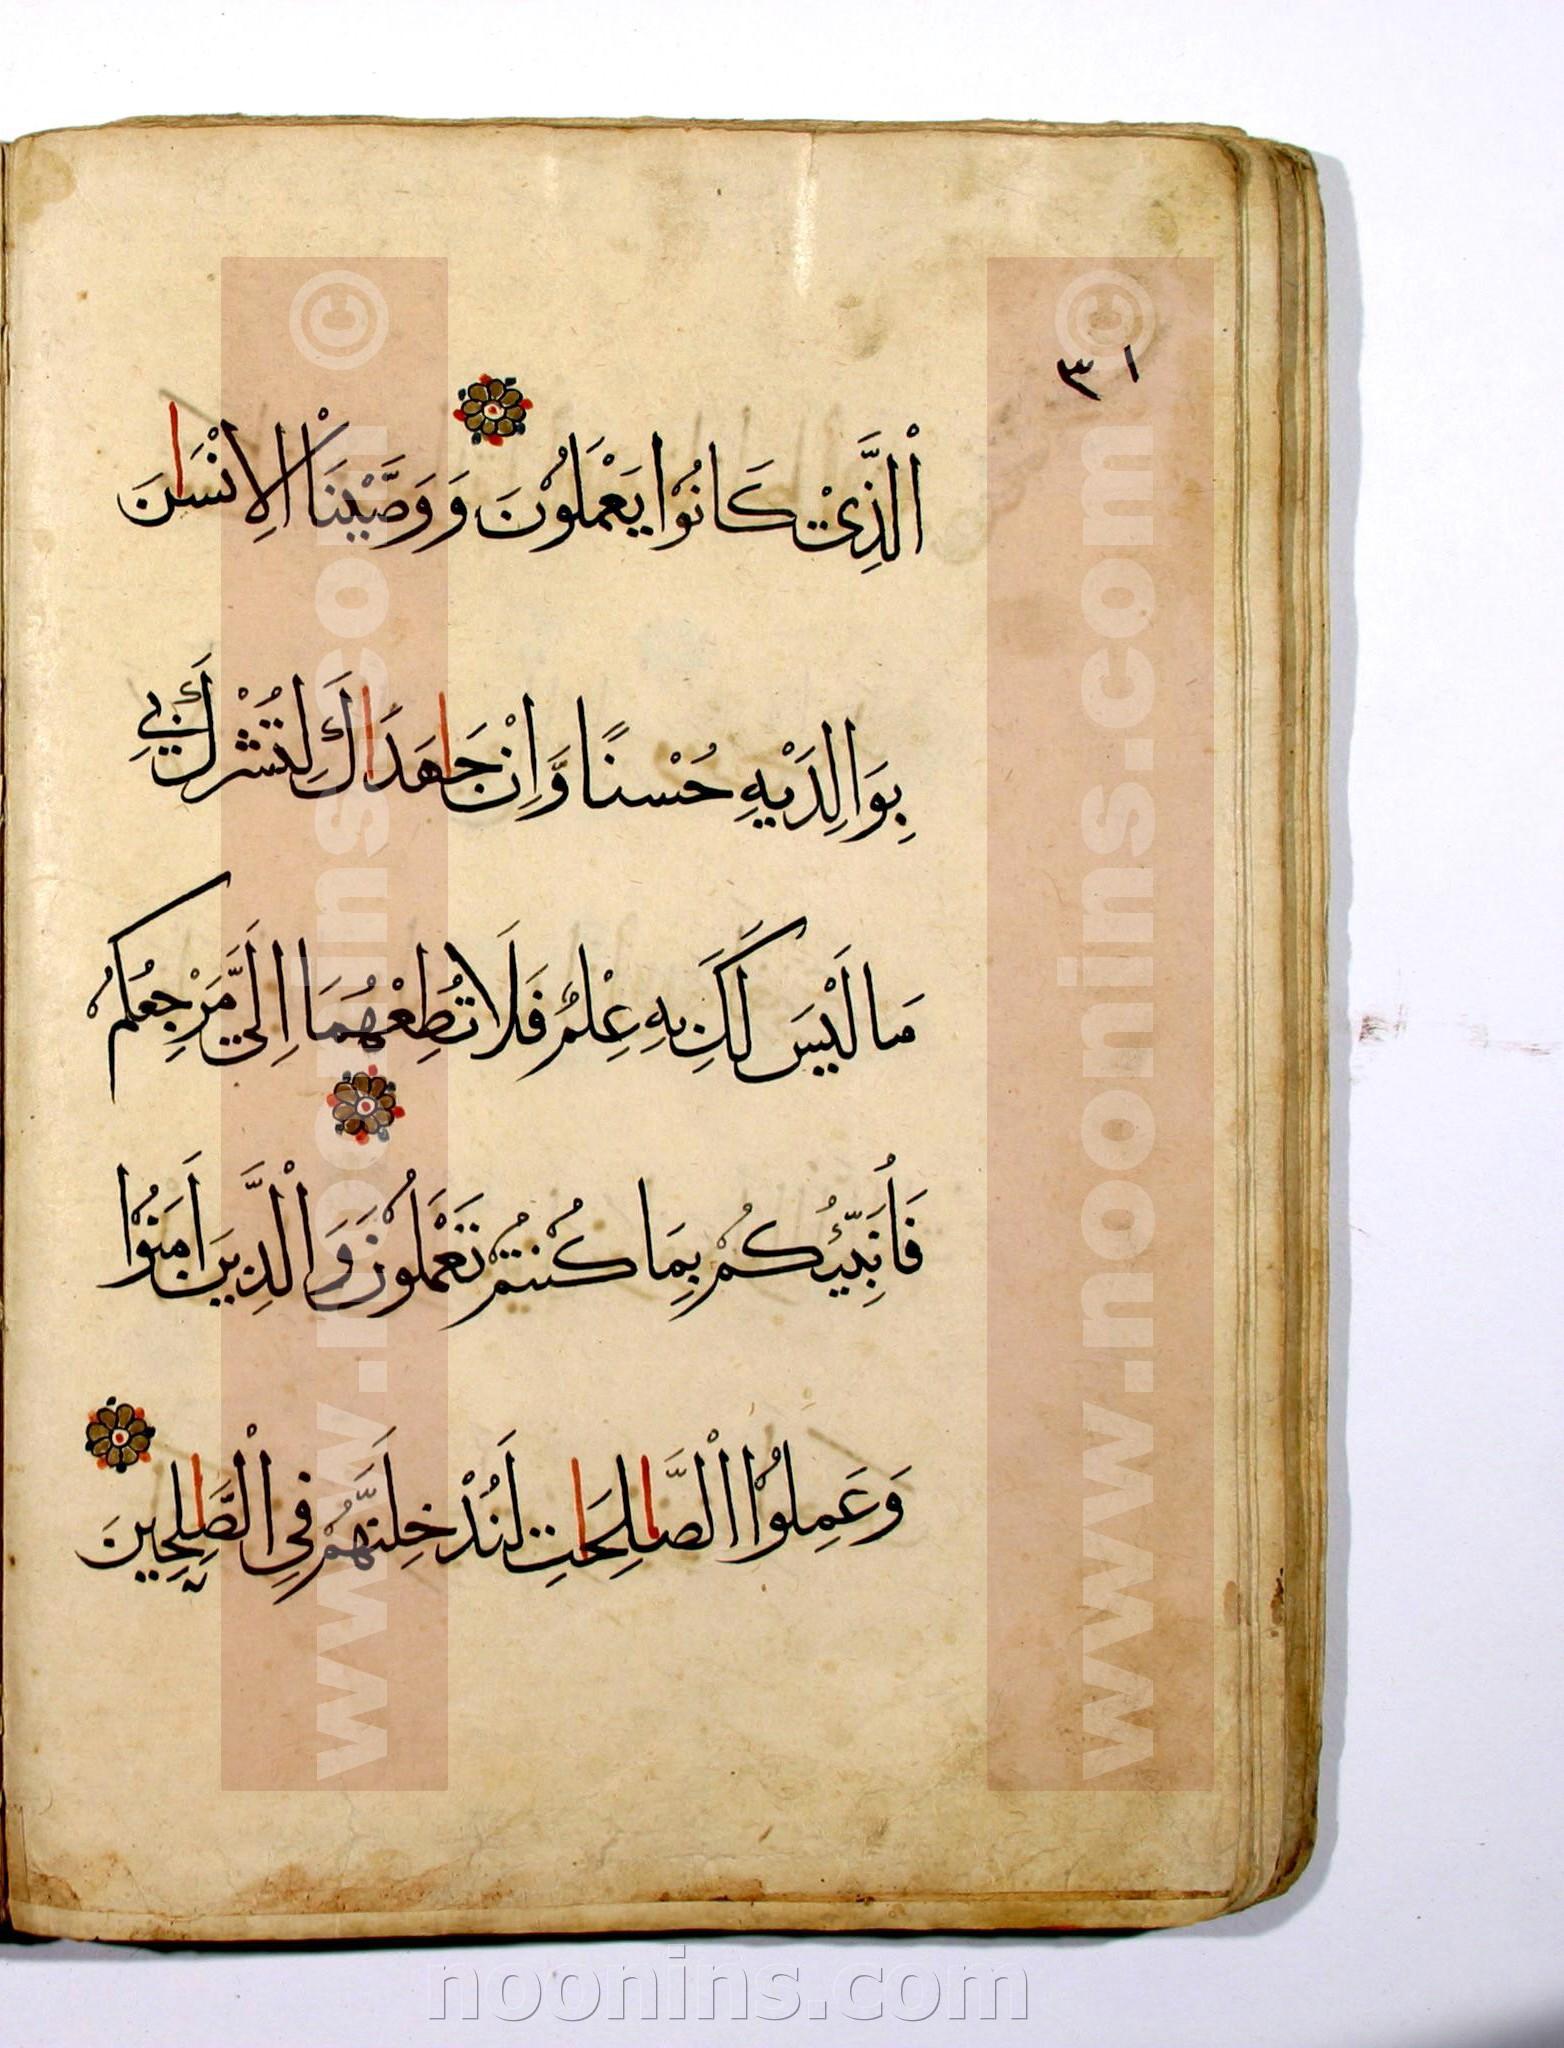 ١٣
اَلَّذِيْ كَانُوْا يَعْمَلُوْنَ وَوَصَّيْنَا الْاِنْسَانَ
بِوَالِدَيْهِ حُسْنًا وَّاِنْ جَاهَدَاكَ لِتُشْرِكَ بِيْ
مَا لَيْسَ لَكَ بِهٖ عِلْمٌ فَلَا تُطِعْهُمَا اِلَيَّ مَرْجِعُكُمْ
فَاُنَبِّئُكُمْ بِمَا كُنْتُمْ تَعْمَلُوْنَ وَالَّذِيْنَ اٰمَنُوْا
وَعَمِلُوا الْصَّالِحَاتِ لَنُدْخِلَنَّهُمْ فِي الْصَّالِحِيْنَ
www.noonins.com ©
www.noonins.com ©
noonins.com